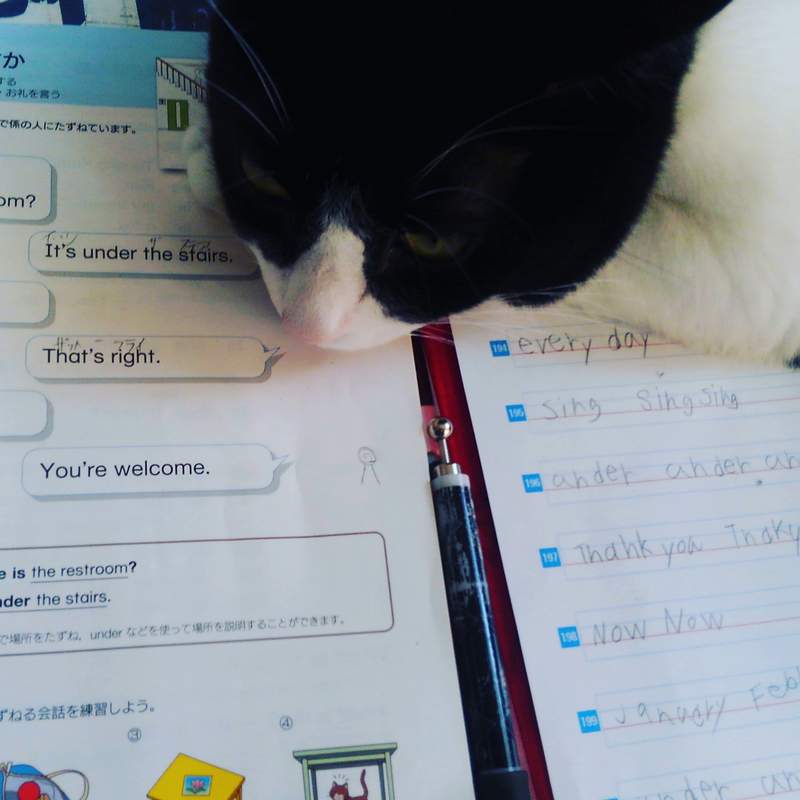 か
する
・お礼を言う
で係の人にたずねています。
om?
イッツ ザ
It's under the stairs.
That's right.
You're welcome.
e is the restroom?
der the stairs.
で場所をたずね，under などを使って場所を説明することができます。
ずねる会話を練習しよう。
③ ④
194 every day
195 sing sing sing
196 under under un
197 Thank you Thaky
198 Now Now
199 January Feb
under un